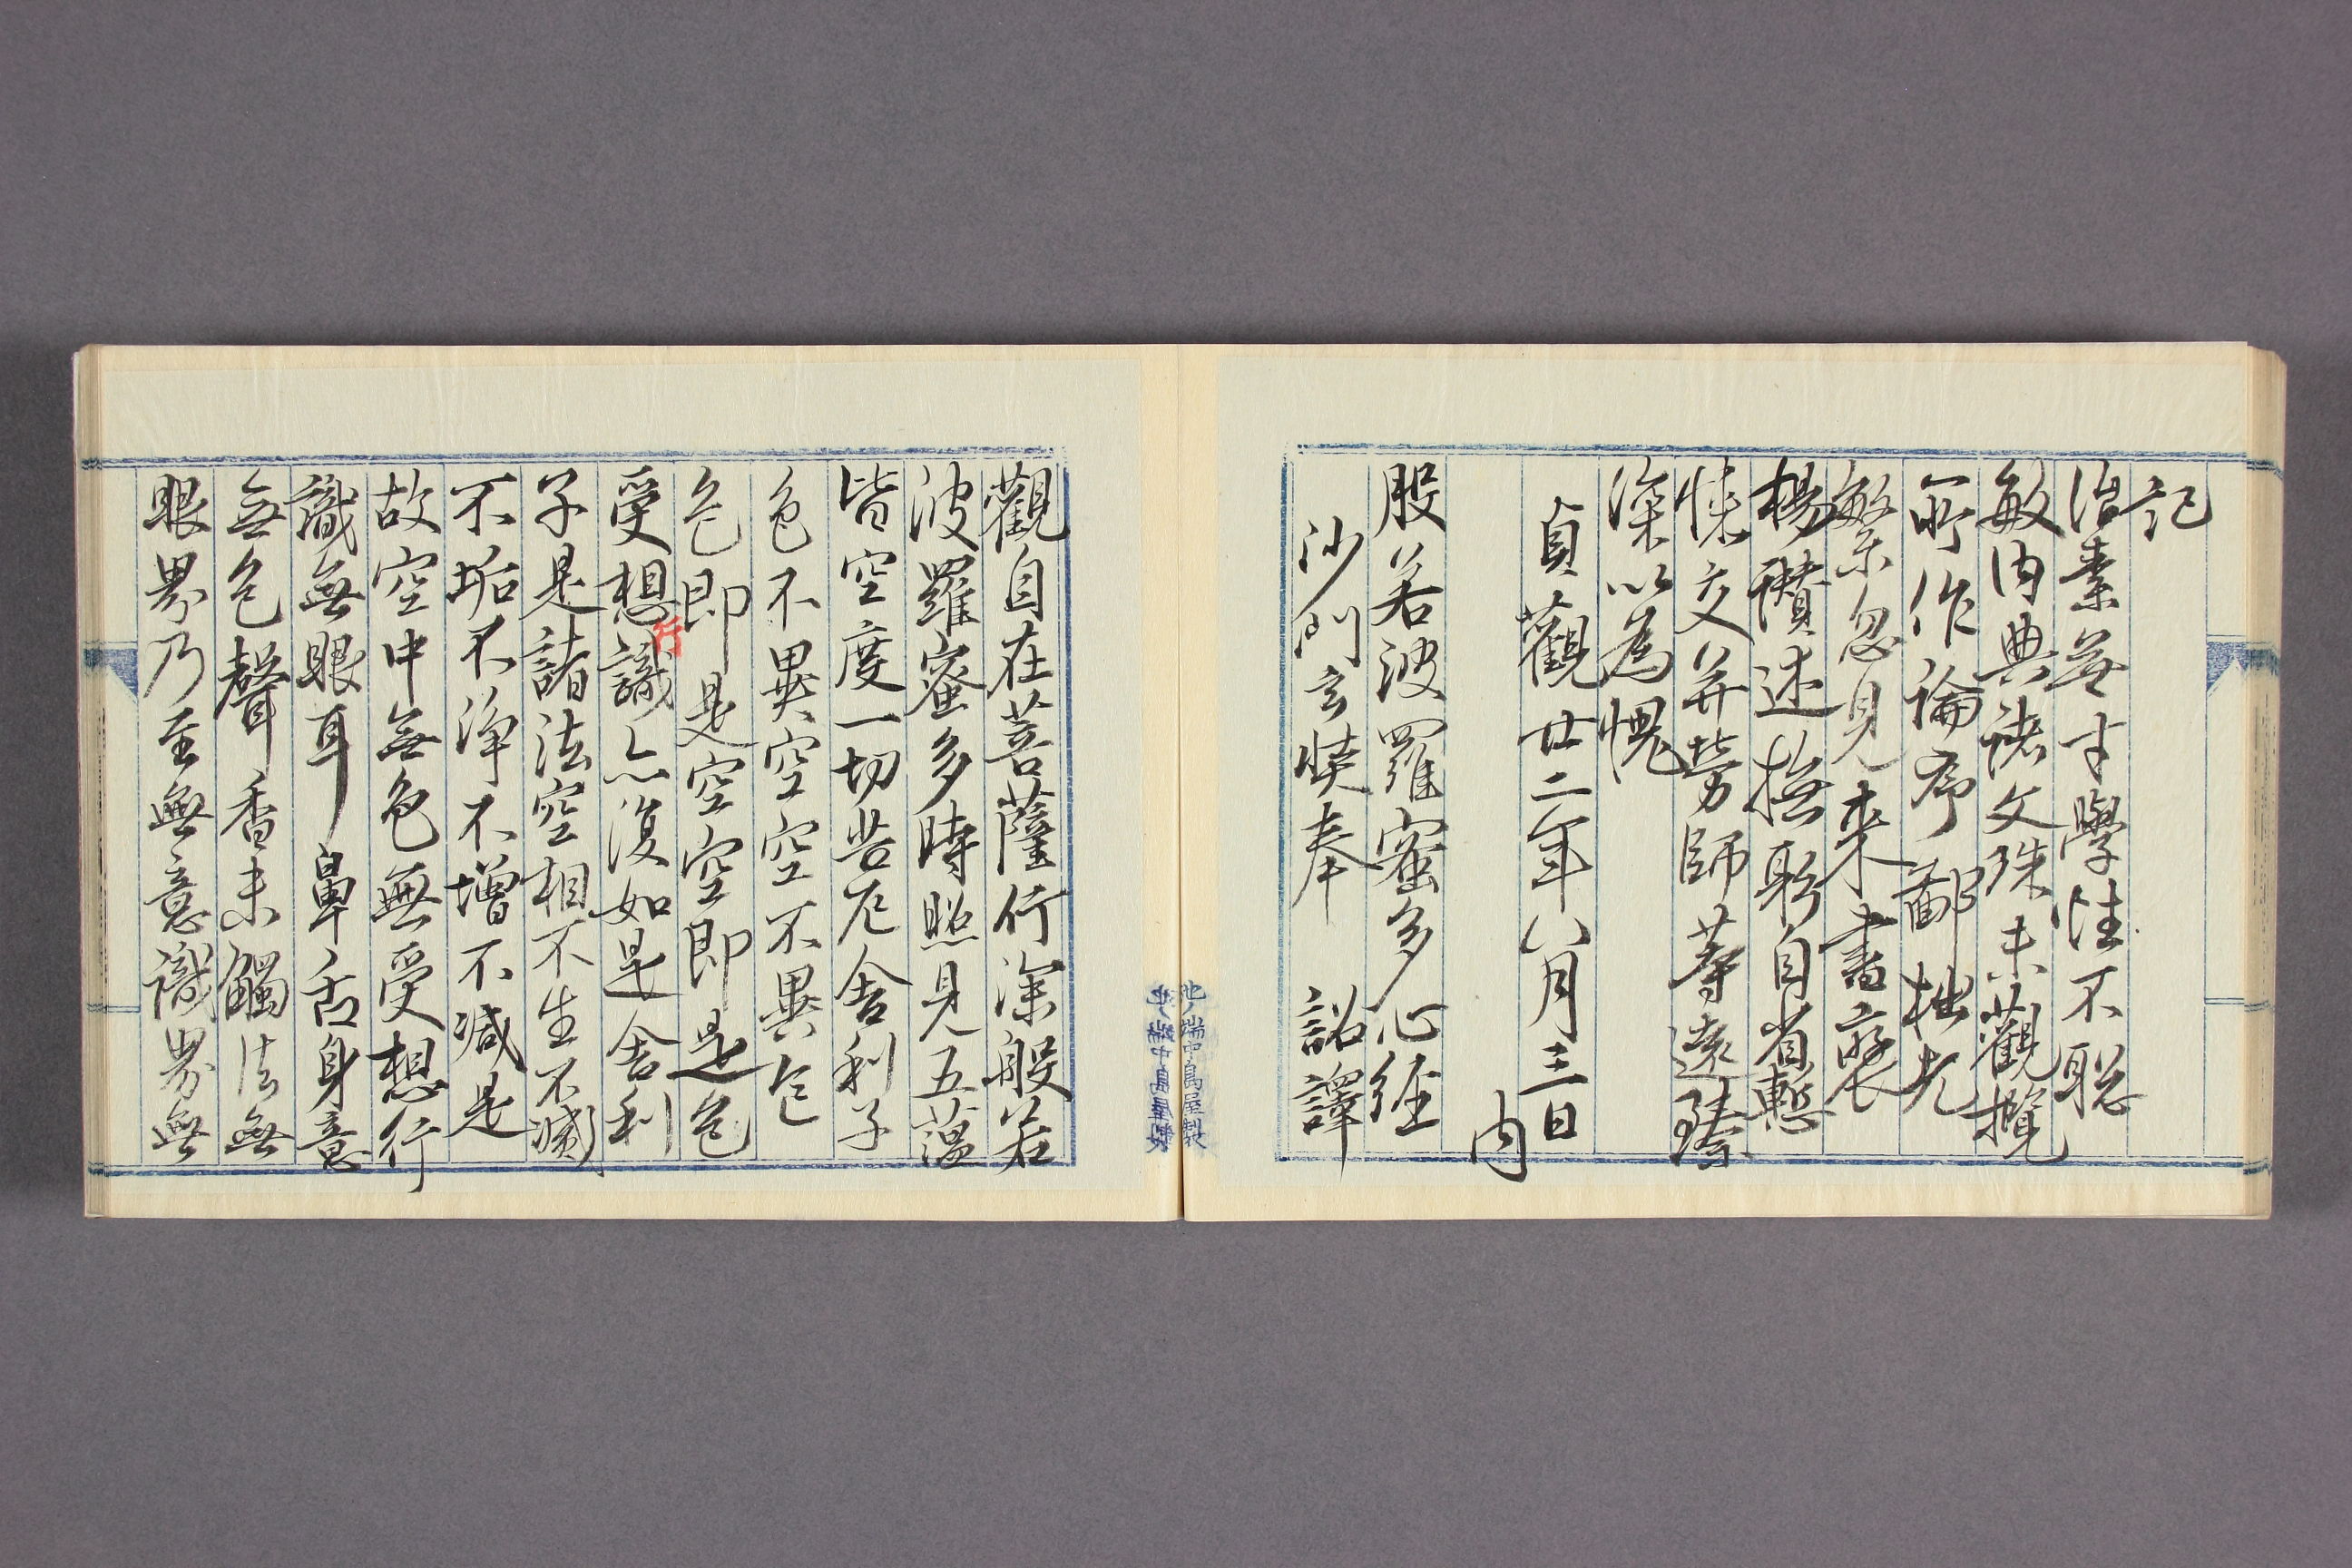 記
治素無才學性不聡
敏内典諸文殊未觀攬
所作論序鄙拙尤
繁忽見来書褒
楊讃述撫躬自省慙
悚交并勞師等遠臻
深以為愧
貞觀廿二年八月三日
内
般若波羅蜜多心経
沙門玄奘奉 詔譯
觀自在菩薩行深般若
波羅蜜多時照見五蘊
皆空度一切苦厄舎利子
色不異空空不異色
色即是空空即是色
受想行識亦復如是舎利
子是諸法空相不生不滅
不垢不浄不増不減是
故空中無色無受想行
識無眼耳鼻舌身意
無色聲香未觸法無
眼界乃至無意識界無
池ノ端中島屋製
池ノ端中島屋製